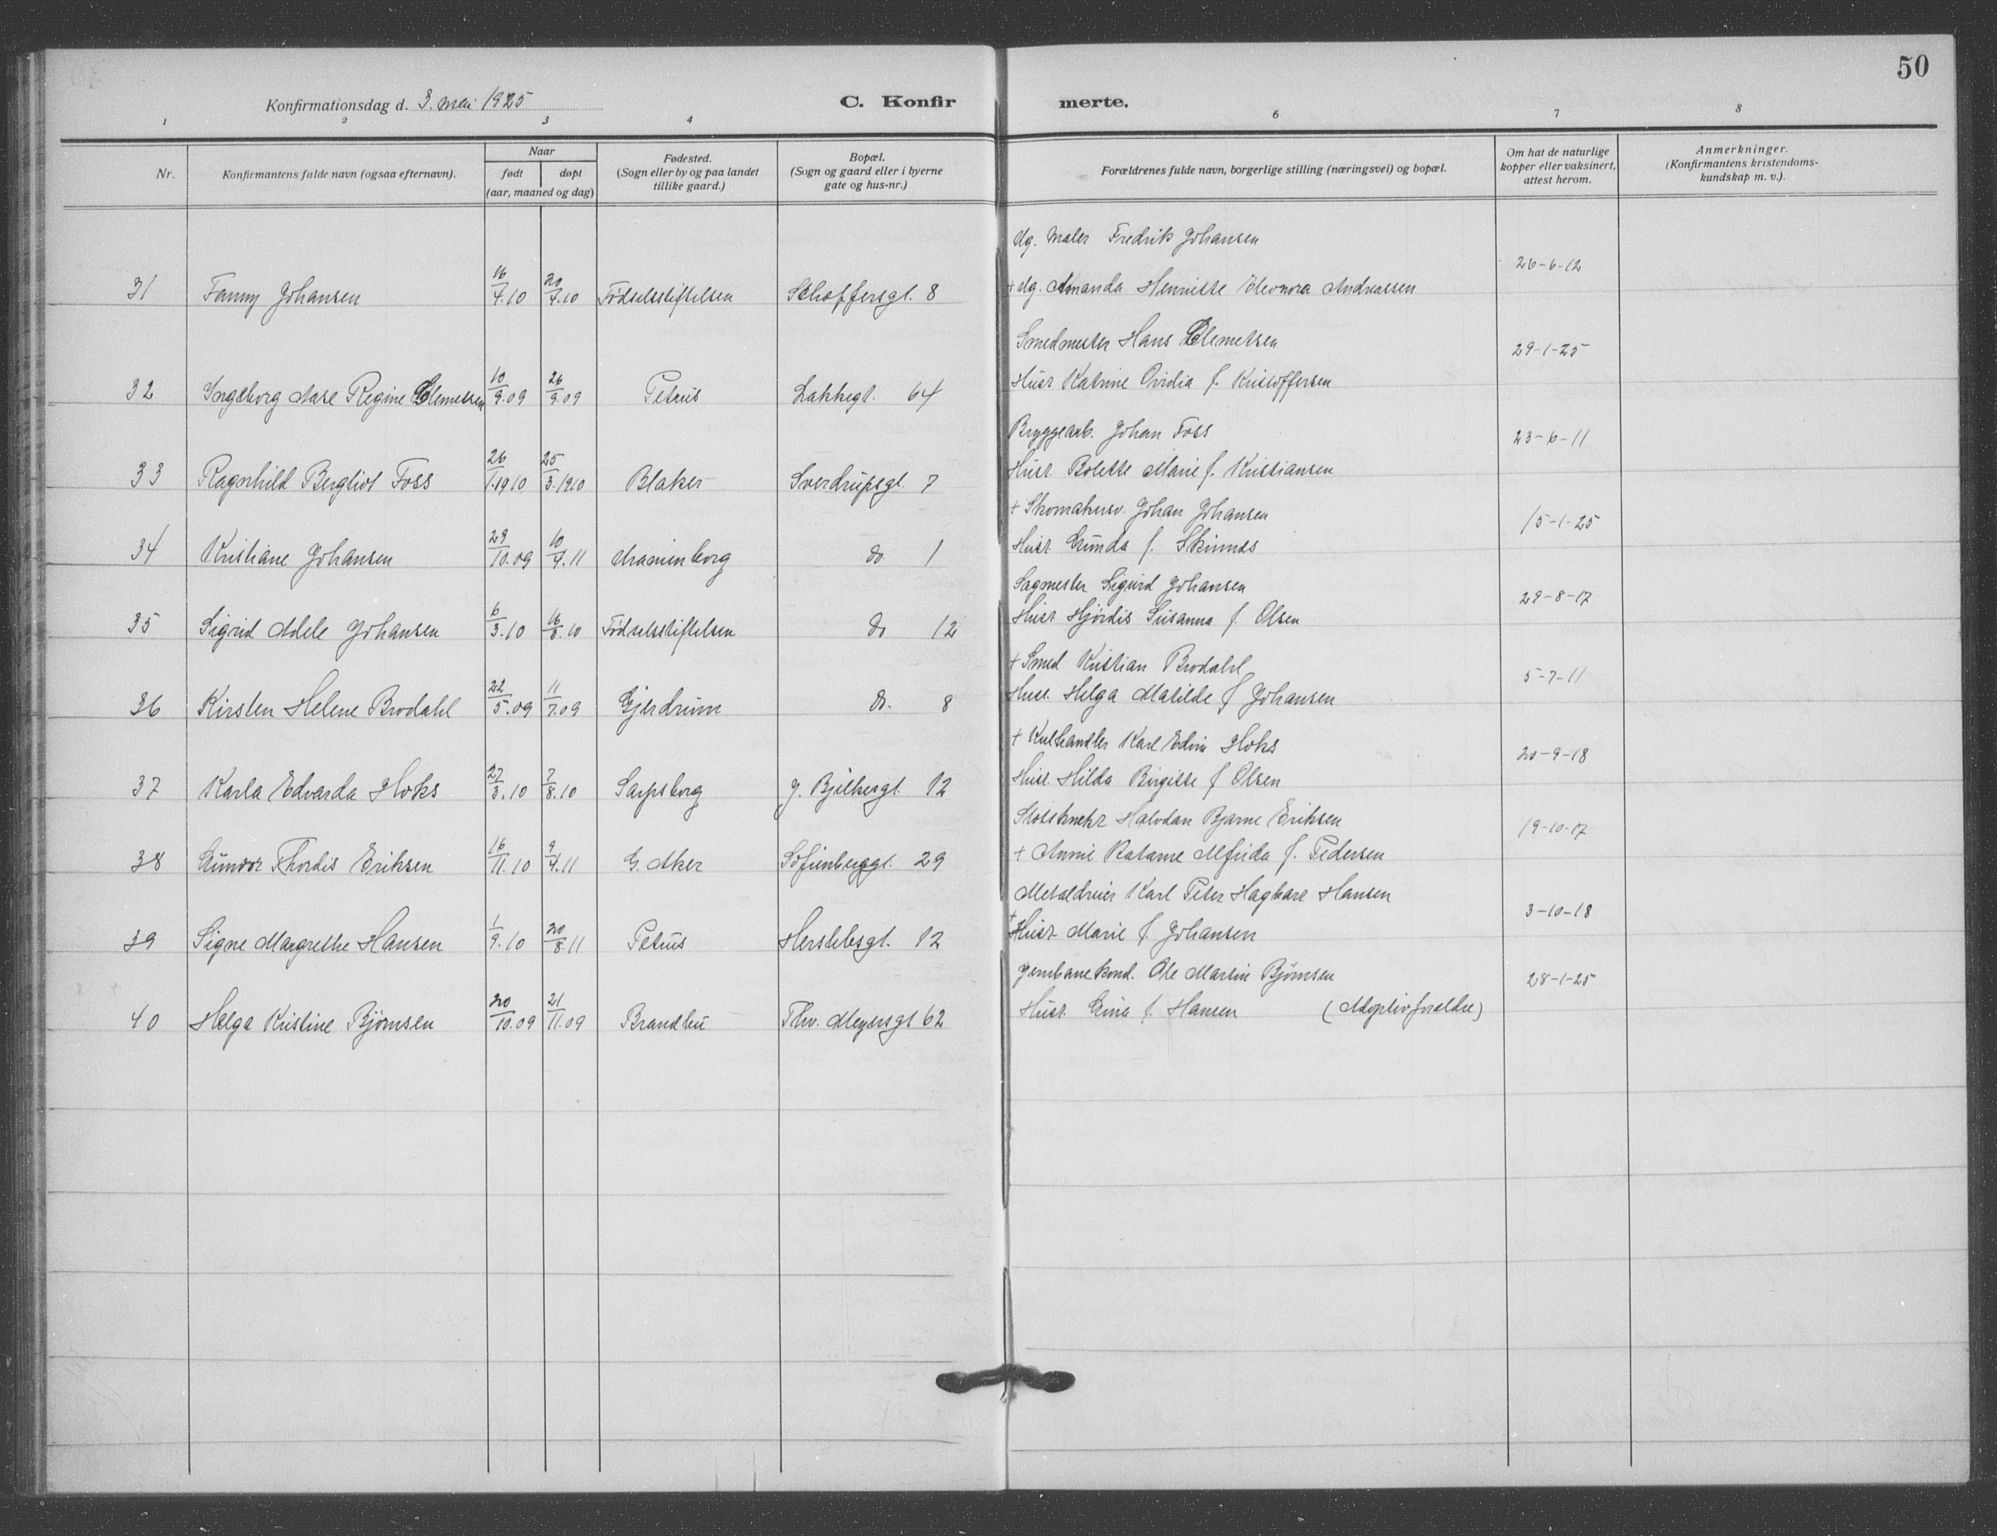 50
Konfirmationsdag d. 3. mai 1925
C. Konfir merte.
1 2 3 4 6 7 8
Nr.
Konfirmantens fulde navn (ogsaa efternavn).
Naar
født døpt
(aar, maaned og dag)
Fødested.
(Sogn eller by og paa landet
tillike gaard.)
Bopæl.
(Sogn og gaard eller i byerne
gate og hus-nr.)
Forældrenes fulde navn, borgerlige stilling (næringsvei) og bopæl.
Om hat de naturlige
kopper eller vaksinert,
attest herom.
Anmerkninger.
(Konfirmantens kristendoms-
kundskap m. v.).
Ug. Maler Fredrik Johansen
31 Fanny Johansen 16/4.10 20/4.10 Fødselsstiftelsen Schoffersgt. 8 + Ug. Amanda Henriette Eleonora Andreassen 26-6-12
Smedmester Hans Clemetsen
32 Ingeborg Aase Regine Clemetsen 10/9.09 26/9.09 Petrus Lakkegt. 64 Hust Katrine Ovidia f. Kristoffersen 29-1-25
Bryggearb. Johan Foss
33 Ragnhild Bergliot Foss 26/1.1910 25/3.1910 Blaker Sverdrupsgt. 7 Hust Bolette Marie f. Kristiansen 23-6-11
+ Skomakersv. Johan Johansen
34 Kristiane Johansen 29/10.09 10/4.11 Marienborg do 1 Hust Gunda f. 15-1-25
Sagmester Sigurd Johansen
35 Sigrid Adele Johansen 6/3.10 16/8.10 Fødselsstiftelsen do 12 Hust Hjørdis Susanna f. Olsen 29-8-17
+ Smed Kristian Brodahl
36 Kirsten Helene Brodahl 22/5.09 11/7.09 Gjerdrum do. 8 Hust. Helga Matilde f Johansen 5-7-11
+ Kulhandler Karl Edvin Hoks
37 Karla Edvarda Hoks 27/3.10 7/8.10 Sarpsborg J. Bjelkesgt. 12 Hust. Hilda Birgitte f Olsen 20-9-18
Slotsknekt Halvdan Bjarne Eriksen
38 Gunvor Thordis Eriksen 16/11.10 9/4.11 G. Aker Sofienberggt. 29 + Annie Katarne Alfrida f. Pedersen 19-10-17
Metaldreier Karl Peter Hagbart Hansen
39 Signe Margrethe Hansen 1/9.10 20/8.11 Petrus Herslebsgt. 12 + Hust Marie f. Johansen 3-10-18
Jernbanekond. Ole Martin Bjørnsen
40 Helga Kristine Bjørnsen 20/10.09 21/11.09 Brandbu Thv. Meyersgt 62 Hust Gina f. Hansen (Adoptivforældre) 28-1-25